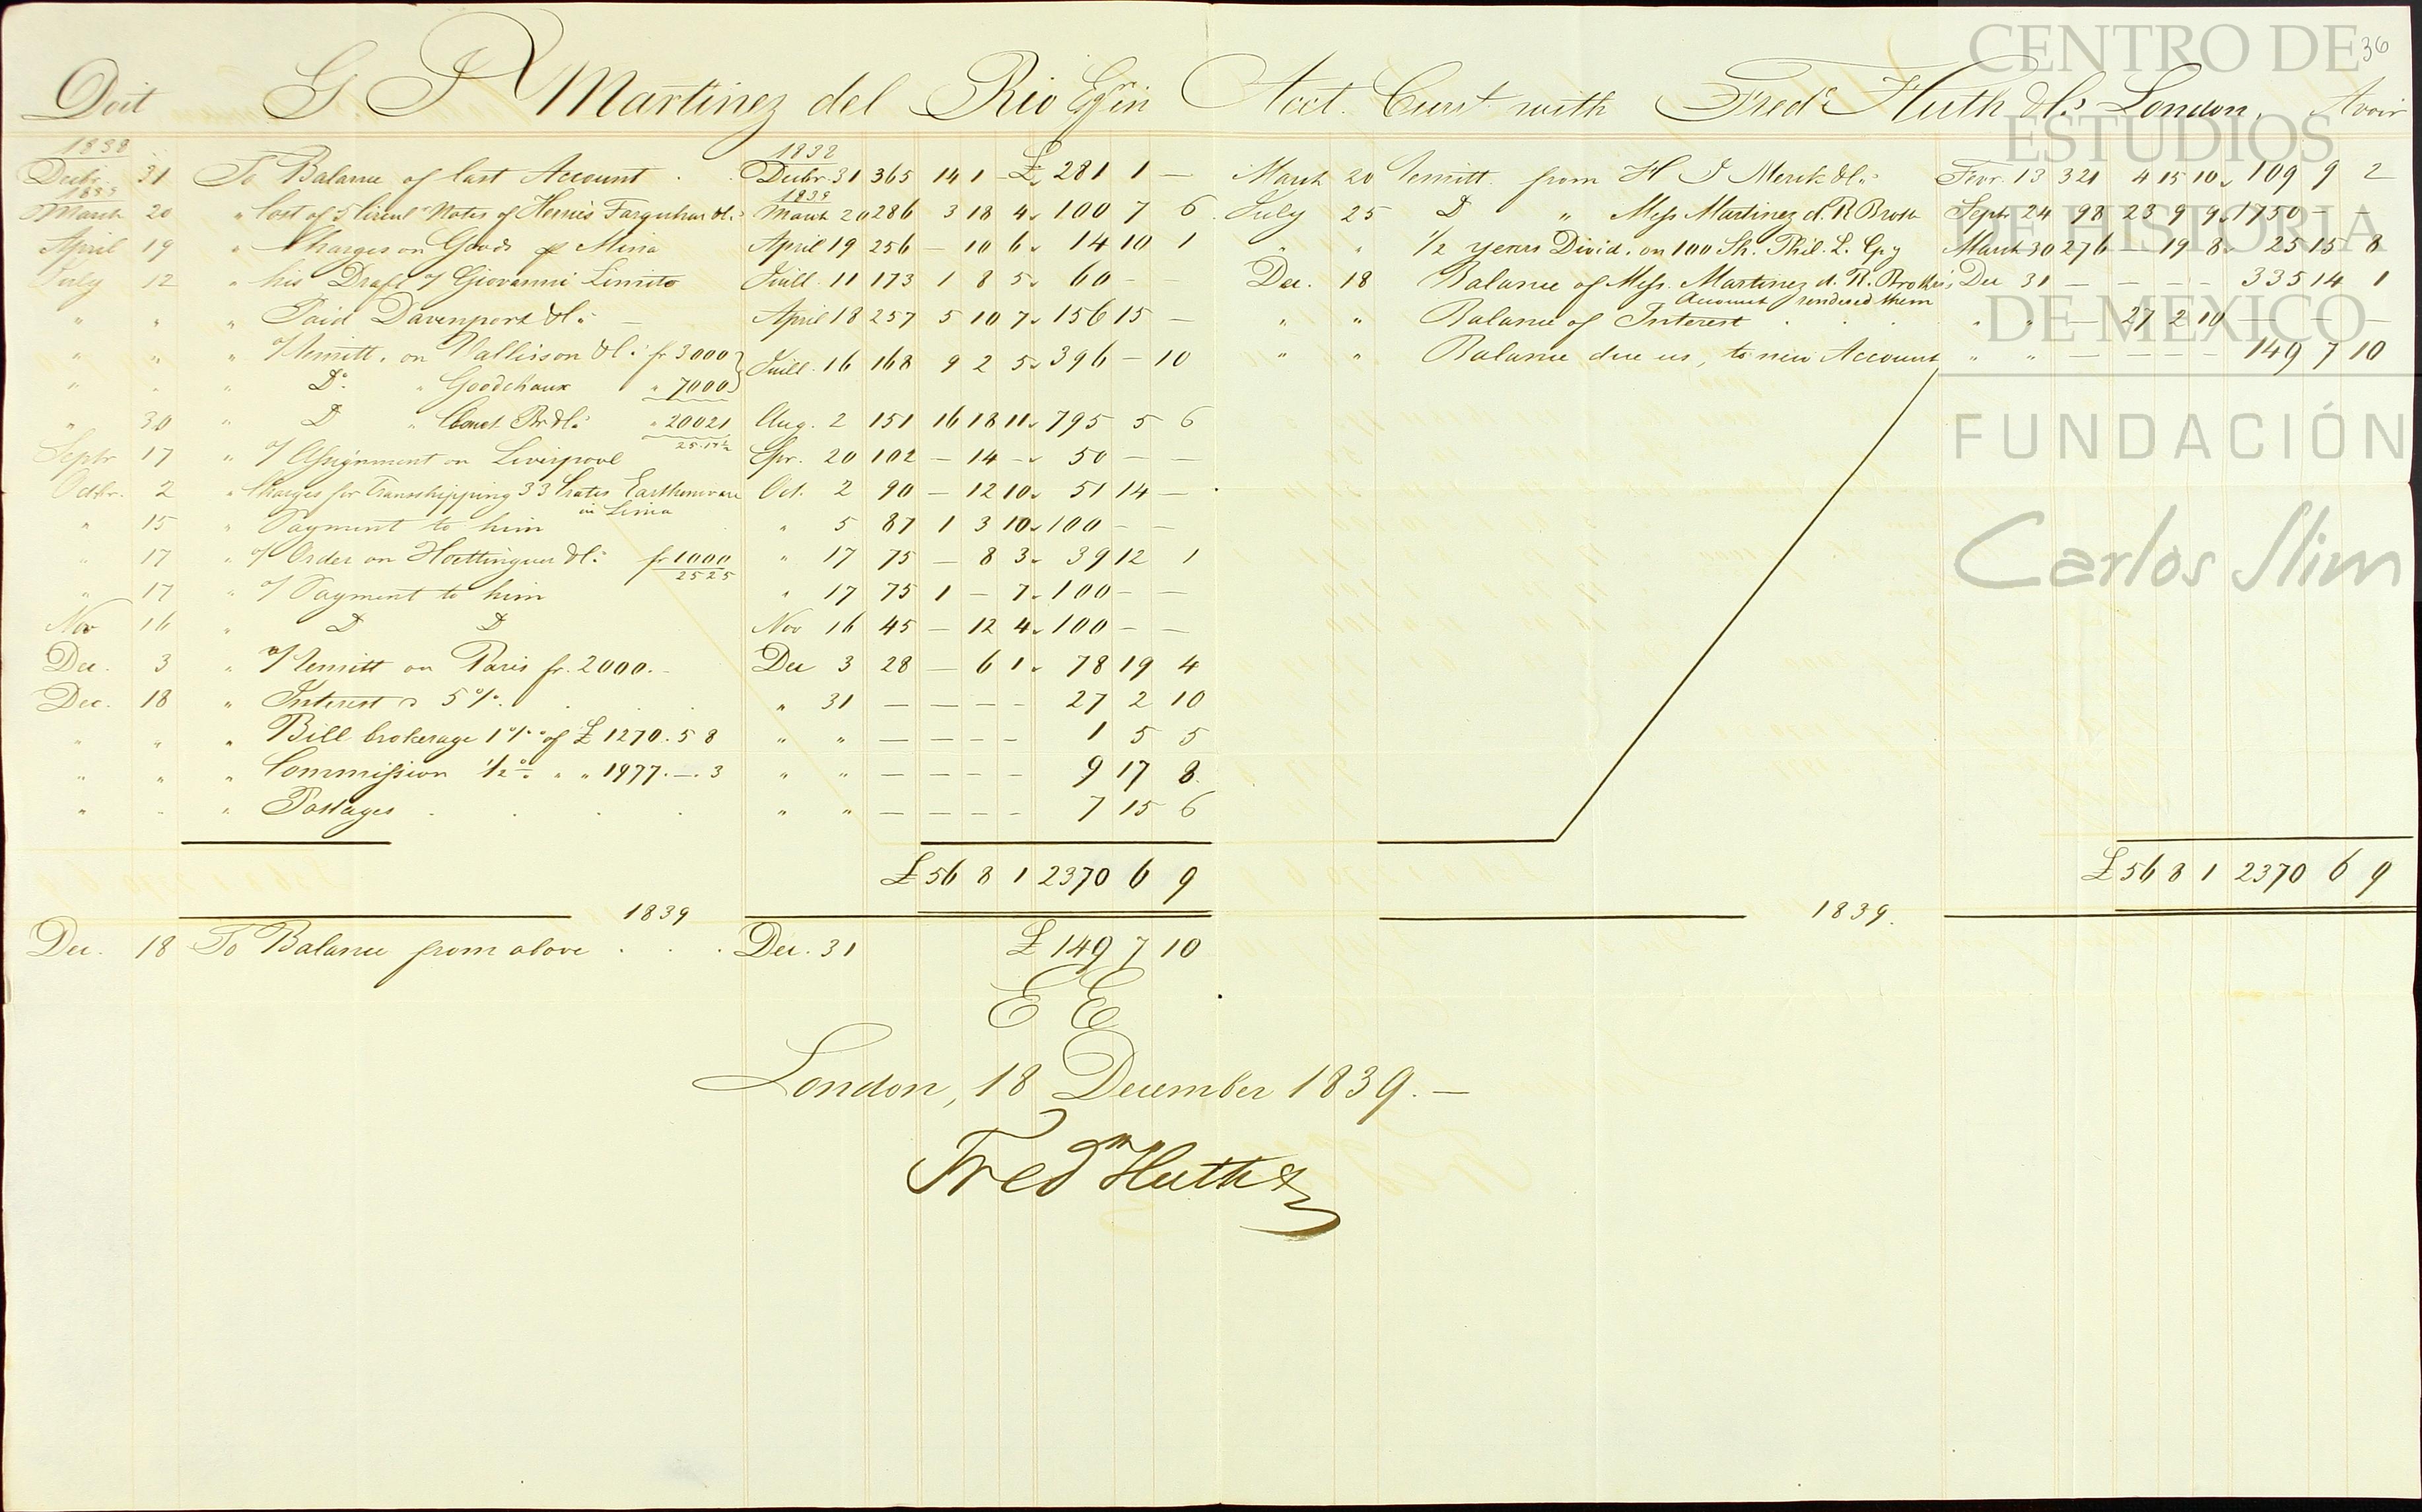 36
Doit G J Martinez del Rio Esqr in Acct. Curt. with Fredk Huth & Co. London. Avoir
1838 1838
Decbr. 31 To Balance of last Account Decbr. 31 365 14 1 £ 281 1 — March 20 Remitt. from H J Merck & Co. Febr. 13 321 4 15 10 109 9 2
1839 1839
March 20 " Cost of 5 Circul Notes of Herries Farquhar & Co. March 20 286 3 18 4 100 7 6 July 25 D " Mess Martinez d. R Broth Septr 24 98 23 9 9 1750 — —
April 19 " Charges on Goods p Miria April 19 256 — 10 6 14 10 1 " " 1/2 years Divid. on 100 Sh. Phil. L. Cpy March 30 276 — 19 8 25 15 8
July 12 " his Draft o/ Giovanni Limito Juill. 11 173 1 8 5 60 — — Dec. 18 Balance of Mess. Martinez d. R. Brothers Dec 31 — — — — 335 14 1
Account rendered them
" " " Paid Davenport & Co. — April 18 257 5 10 7 156 15 — " " Balance of Interest " " — 27 2 10 — — —
" " " o/ Remitt. on Wallisson & Co. fr 3000 } Juill. 16 168 9 2 5 396 — 10 " " Balance due us, to new Account " " — — — — 149 7 10
" " " Do. " Goodchaux " 7000
" 30 " D " Br & Co. " 20021 Aug. 2 151 16 18 11 795 5 6
25.17½
Septr 17 " o/ Assignment on Liverpool Spr. 20 102 — 14 — 50 — —
Octbr. 2 " Charges for Transshipping 33 Crates Earthenware Oct. 2 90 — 12 10 51 14 —
in Lima
" 15 " Payment to him " 5 87 1 3 10 100 — —
" 17 " o/ Order on Hottinguer & Co. fr 1000 " 17 75 — 8 3 39 12 1
2525
" 17 " o/ Payment to him " 17 75 1 — 7 100 — —
Nov 16 " D D Nov 16 45 — 12 4 100 — —
Dec. 3 " o/ Remitt on Paris fr. 2000. — Dec 3 28 — 6 1 78 19 4
Dec. 18 " Interest a 5%. " 31 — — — — 27 2 10
" " " Bill brokerage 1‰ of £ 1270. 5 8 " " — — — — 1 5 5
" " " Commission 1/2% " " 1977. —. 3 " " — — — — 9 17 8
" " " Postages " " — — — — 7 15 6
£ 56 8 1 2370 6 9 £ 56 8 1 2370 6 9
1839 1839.
Dec. 18 To Balance from above Dec. 31 £ 149 7 10
E E
London, 18 December 1839. —
Fredk Huth & Co
CENTRO DE
ESTUDIOS
DE HISTORIA
DE MEXICO
FUNDACIÓN
Carlos Slim